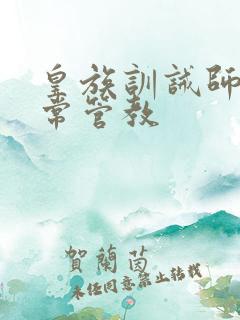 皇族訓誡師
常管教
賀蘭茵
未经同意禁止转载